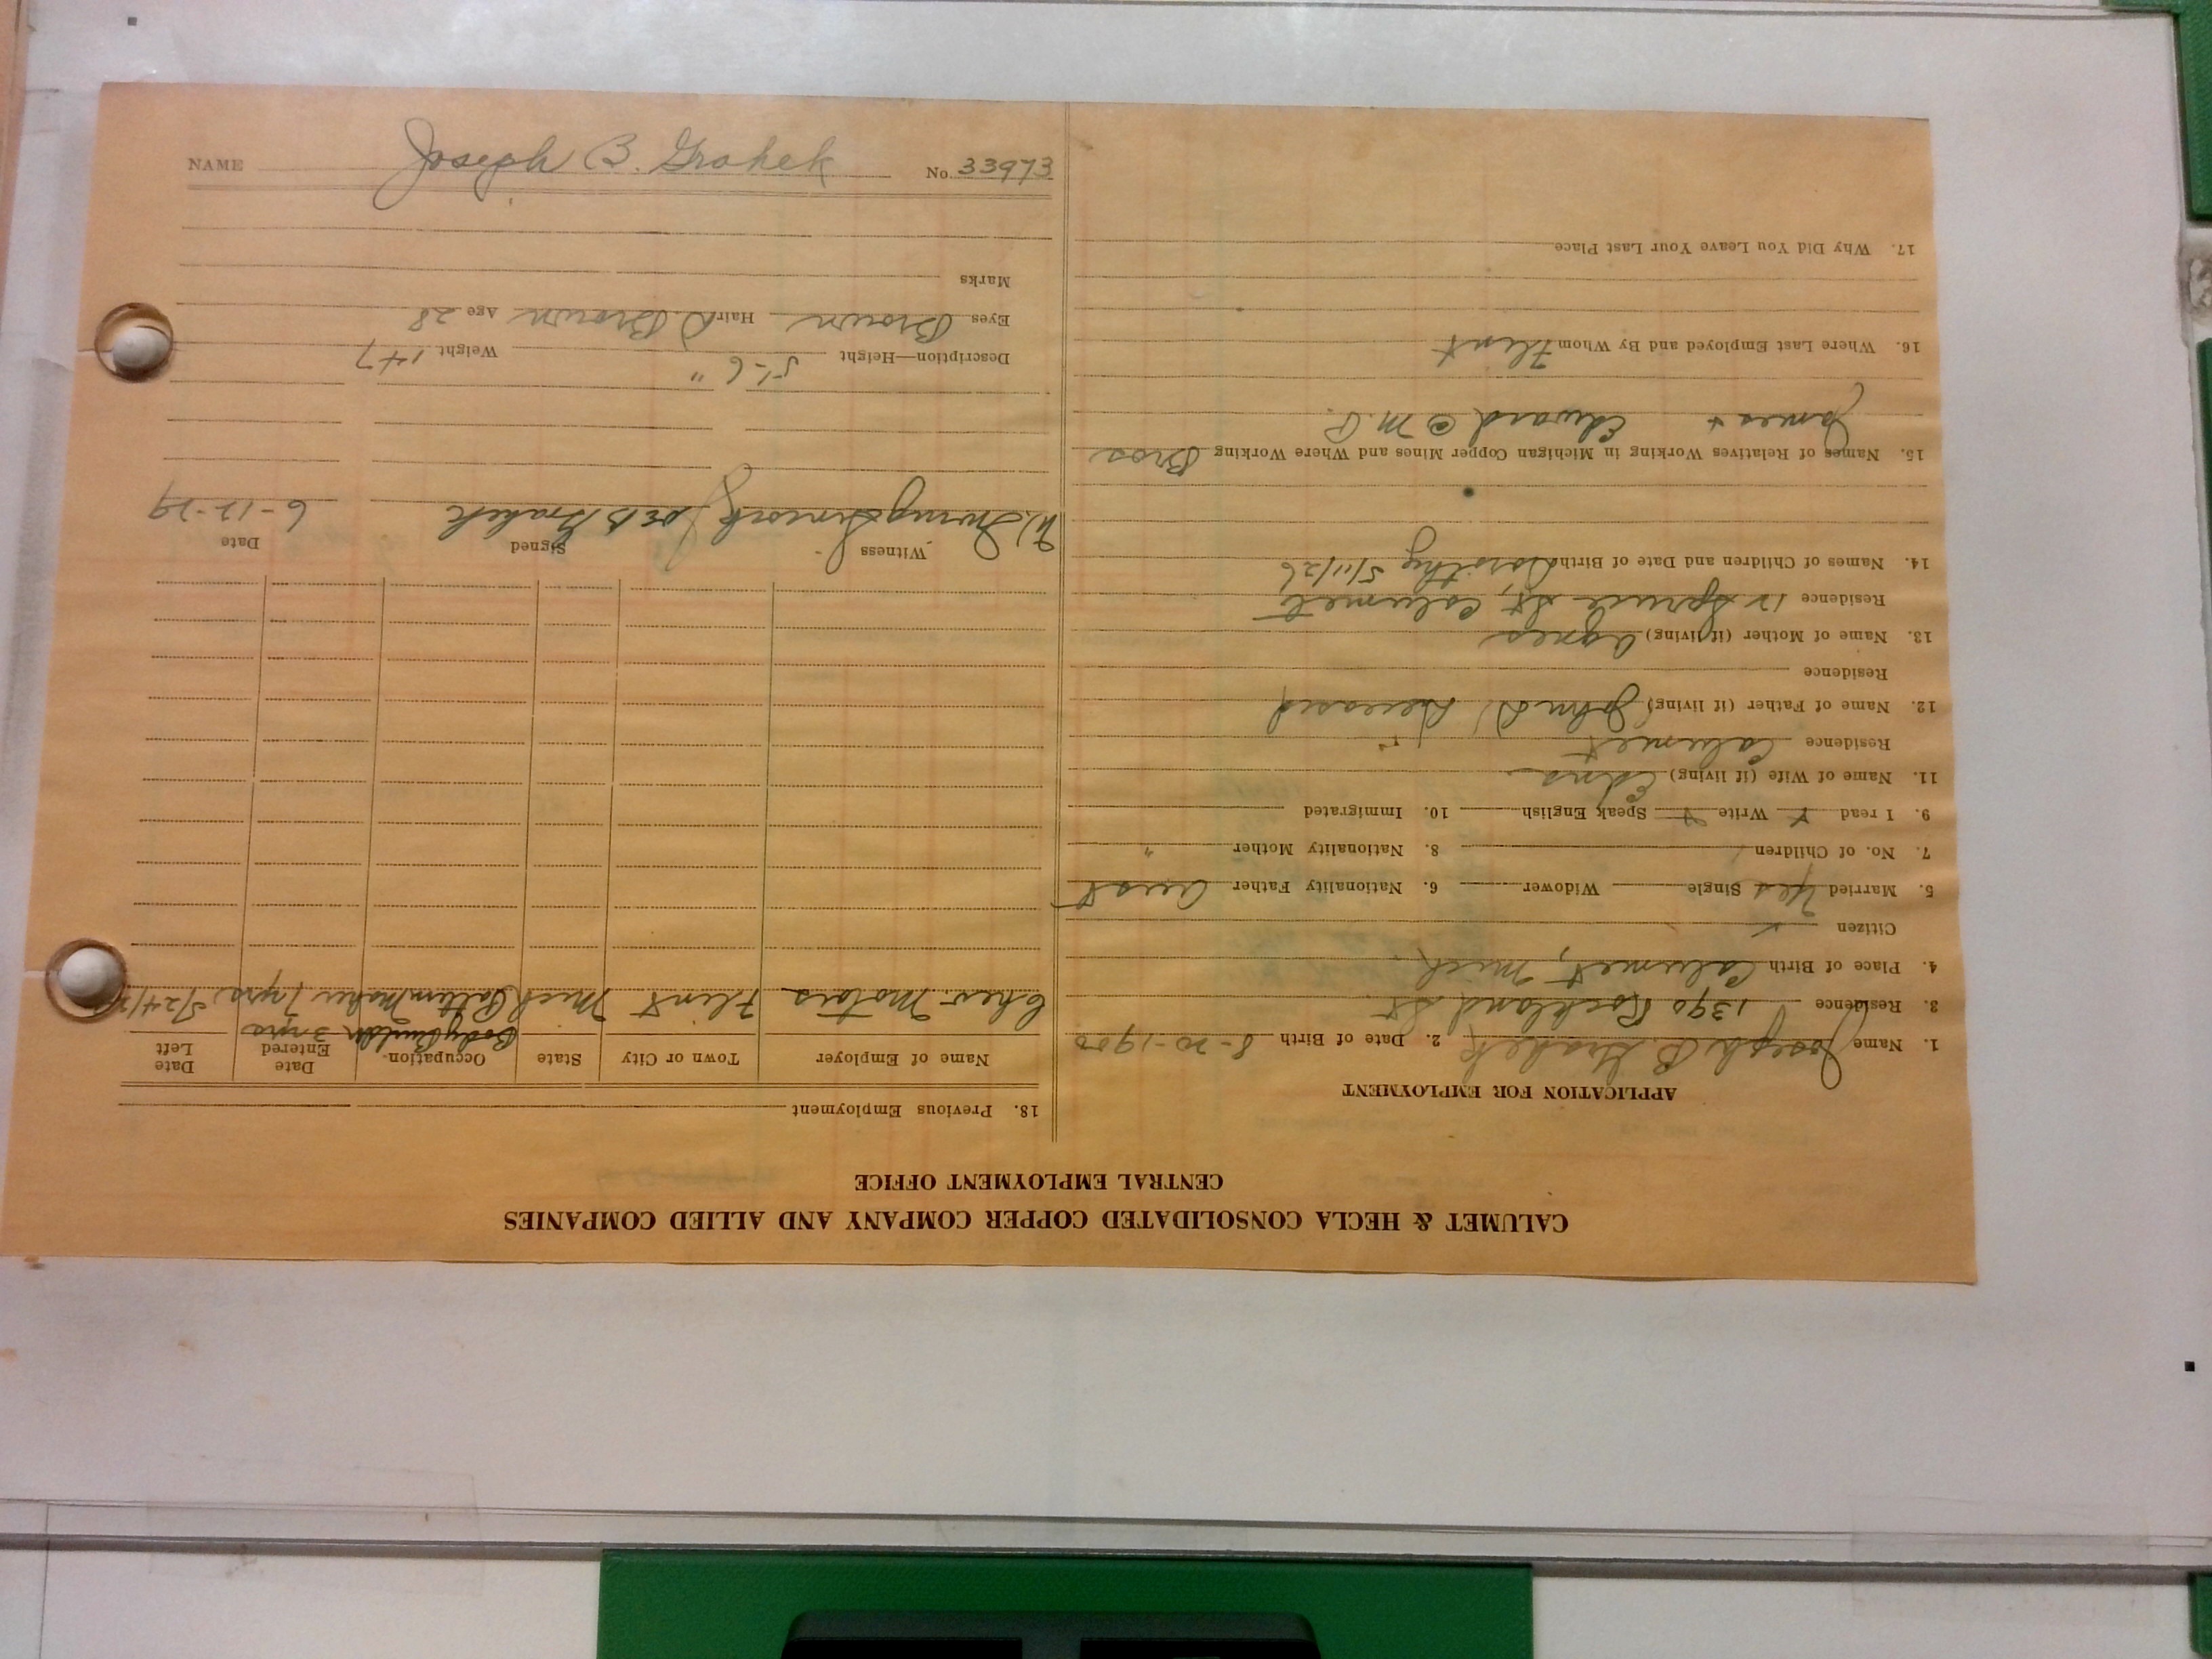 CALUMET & HECLA CONSOLIDATED COPPER COMPANY AND ALLIED COMPANIES
CENTRAL EMPLOYMENT OFFICE
APPLICATION FOR EMPLOYMENT
1. Name Joseph B. Grahek 2. Date of Birth 8-20-1900
3. Residence 1390 Rockland St.
4. Place of Birth Calumet, Mich.
Citizen ✓
5. Married Yes Single Widower 6. Nationality Father Aust
7. No. of Children 1 8. Nationality Mother "
9. I read x Write x Speak English 10. Immigrated
11. Name of Wife (if living) Edna
Residence Calumet
12. Name of Father (if living) John S. Deceased
Residence
13. Name of Mother (if living) Agnes
Residence 12 Spruce St, Calumet
14. Names of Children and Date of Birth Dorothy 5/11/26
15. Names of Relatives Working in Michigan Copper Mines and Where Working Bros
James + Edward @ M.C.
16. Where Last Employed and By Whom Flint
17. Why Did You Leave Your Last Place
18. Previous Employment
Name of Employer Town or City State Occupation Date Entered Date Left
Body Builder 3 yrs
Chev. Motors Flint Mich Pattern Maker 7 yrs 5/24/
Witness Signed Date
W. Joe B Grahek 6-12-29
Description—Height 5'-6" Weight 147
Eyes Brown Hair D. Brown Age 28
Marks
NAME Joseph B. Grahek No. 33973